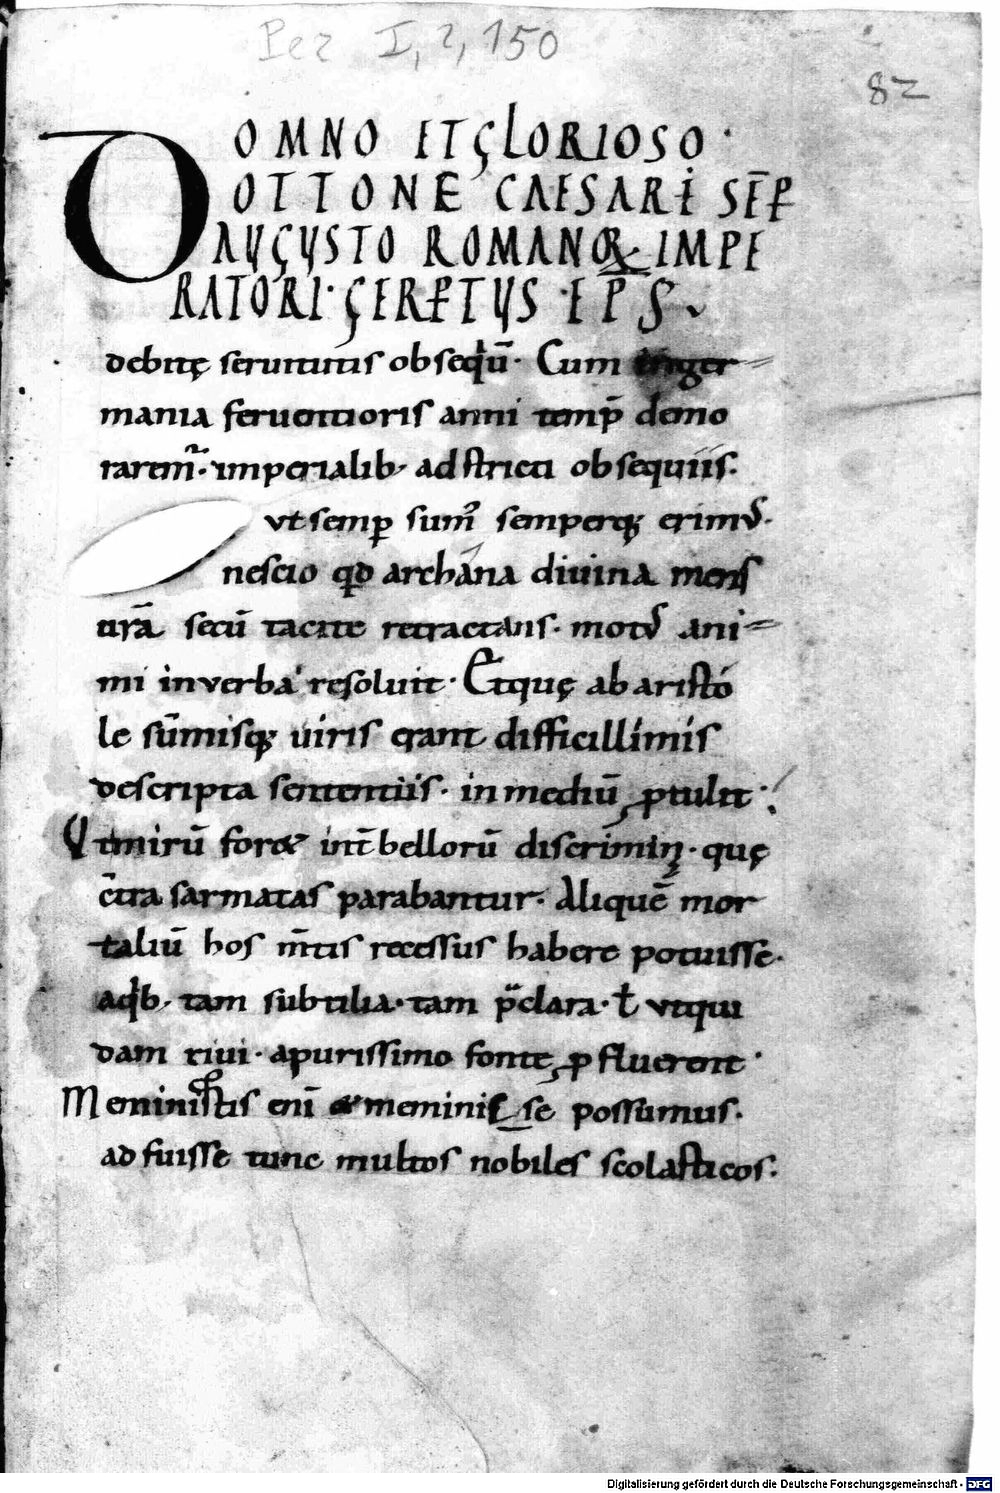 Pez I, 2, 150
82
DOMNO ET GLORIOSO ·
OTTONE CAESARI SEP̄
AUGUSTO ROMANOꝜ IMPE
RATORI · GERƁTUS · EP̄S
debitę seruitutis obseqͥū · Cum inger
mania feruentioris anni temp̄ demo
raremᷣ · imperialib; adstricti obsequiis ·
vt semꝑ sumꝰ semperqꝫ erimꝰ ·
nescio qd archana diuina mens
urā secū tacite retractans · motꝰ ani
mi in verba resoluit · Et quę ab aristo
le sūmisqꝫ uiris erant difficillimis
descripta sententiis · in mediū ꝓtulit ·
Vt mirū foret int̄ bellorū discrimina · quę
c̄tra sarmatas parabantur · Aliquē mor
taliū hos m̄tis recessus habere potuisse ·
aqͥb; tam subtilia · tam p̄clara · ł vt qui
dam riui · a purissimo fonte ꝓfluerent ·
Meministis enī et meminisse possumus ·
adfuisse tunc multos nobiles scolasticos ·
Digitalisierung gefördert durch die Deutsche Forschungsgemeinschaft · DFG